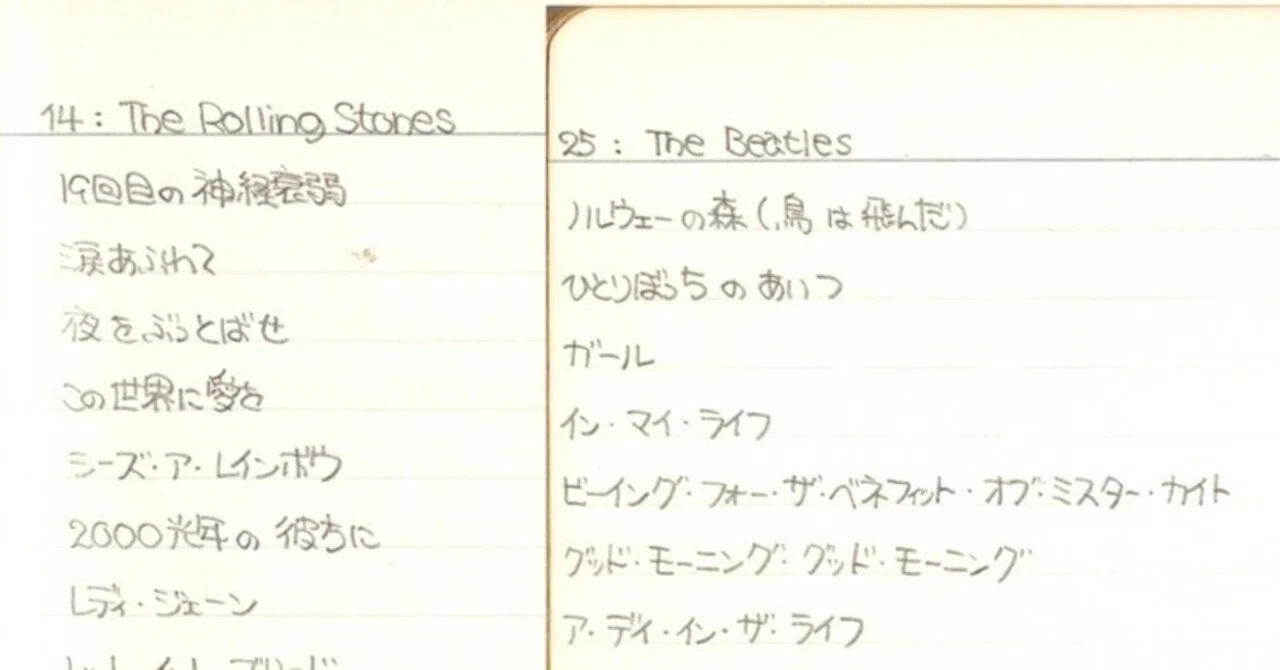 14 : The Rolling Stones
19回目の神経衰弱
涙あふれて
夜をぶっとばせ
この世界に愛を
シーズ・ア・レインボウ
2000光年の彼方に
レディ・ジェーン
25 : The Beatles
ノルウェーの森(鳥は飛んだ)
ひとりぼっちのあいつ
ガール
イン・マイ・ライフ
ビーイング・フォー・ザ・ベネフィット・オブ・ミスター・カイト
グッド・モーニング・グッド・モーニング
ア・デイ・イン・ザ・ライフ